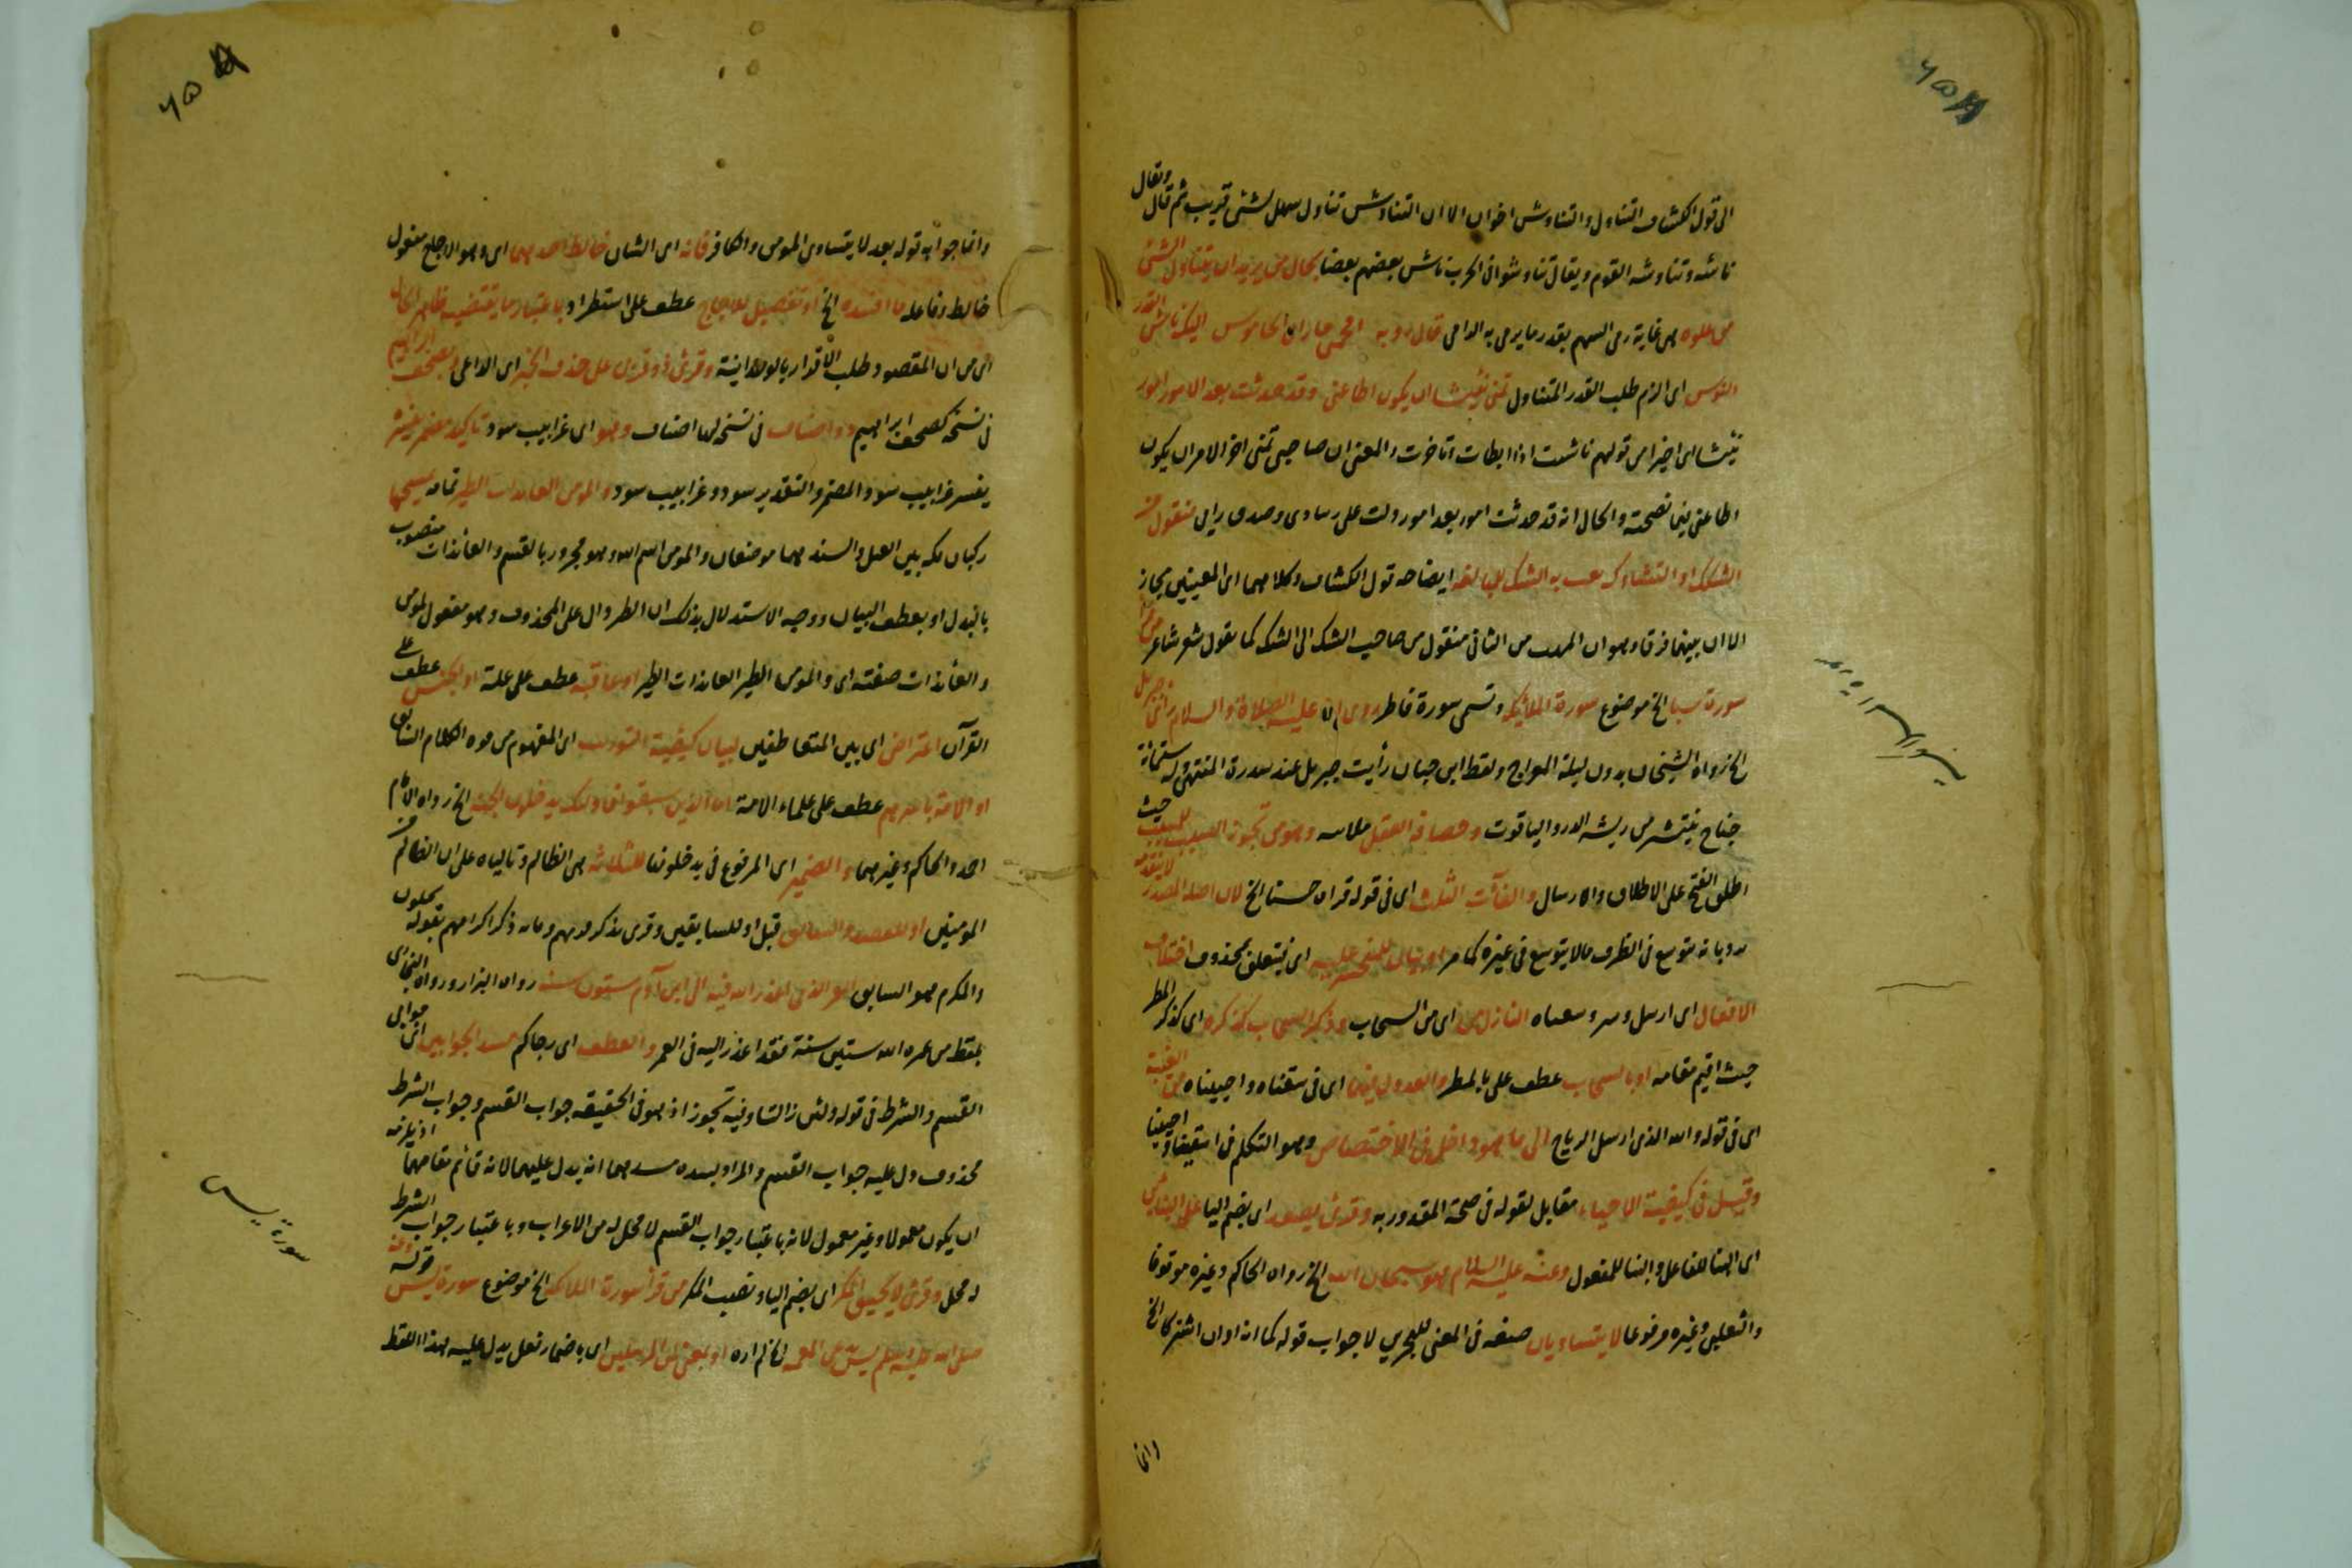 الى قول الكشاف التناول والتناوش اخوان الا ان التناوش تناول سهل لشئ قريب ثم قال ويقال
ناشه وتناوشه القوم ويقال تناوشوا فى الحرب ناش بعضهم بعضا بحال من يريد ان يتناول الشئ
من غلوه هى غاية رمى السهم بقدر ما يرمى به الرامى قال روبه اقحمنى جار ابى الخاموس اليك ناش القدر
النوش اى الزم طلب القدر المتناول تمنى نئيشا ان يكون اطاعنى وقد حدثت بعد الامور امور
نئيشا اى اخيرا من قولهم ناشت اذا ابطات وتاخرت والمعنى ان صاحبى تمنى اخر الامر ان يكون
اطاعنى فيما نصحته والحال انه قد حدثت امور بعد امور دلت على رشادى وصدق رايى منقول من
الشكك او الشك نعت به الشك للمبالغة ايضاحه قول الكشاف وكلاهما اى المعنيين مجاز
الا ان بينهما فرقا وهو ان المريب من الثانى منقول من صاحب الشك الى الشك كما تقول شعر شاعر
سورة سبا الخ موضوع سورة الملائكة وتسمى سورة فاطر روى انه عليه الصلاة والسلام راى جبريل
الخ رواه الشيخان بدون ليلة المعراج ولفظ ابن حبان رأيت جبريل عند سدرة المنتهى وله ستمائة
جناح ينتثر من ريشه الدر والياقوت وحصافة العقل وهو من تجوز السبب للمسبب حيث
اطلق الفتح على الاطلاق والارسال والفآت الثلث اى فى قوله فراه حسنا الخ لان اصله المصدر لا يتقدمه
بانه يتوسع فى الظرف ما لا يتوسع فى غيره كما مر او بيان للمتحسر عليه اى فيتعلق بمحذوف اختلاف
الافعال اى ارسل النازل من اى من السحاب وذكر السحاب كذكره اى كذكر المطر
حيث اقيم مقامه او بالسحاب عطف على بالمطر والعدول فيهما اى فى سقناه واحييناه من الغيبة
اى فى قوله والله الذى ارسل الرياح الى ما هو داخل فى الاختصاص وهو التكلم فى سقنا واحيينا
وقيل فى كيفية الاحياء مقابل لقوله فى صحة المقدور به وقرئ يصعد اى بضم اليا على البنائين
اى البنا للفاعل والبنا للمفعول وعنه عليه السلام هو سبحان الله الخ رواه الحاكم وغيره موقوفا
والثعلبى وغيره مرفوعا لا يتساويان صفة فى المعنى للبحرين لا جواب قوله كما انه وان اشتركا الخ
وانما
وانما جوابه قوله بعد لا يتساوى المومن والكافر فانه اى الشان خالط احدهما اى وهو الاجاج مفعول
خالط وفاعله ما افسده الخ او تفصيل للاجاج عطف على استطراد باعتبار ما يقتضيه ظاهر الحال
اى من ان المقصود طلب الاقدار بالوحدانية وقرئ ذو قربى على حذف الخبر اى الداعى وبصحف ابراهيم
فى نسخة كصحف ابراهيم ذو اصناف فى نسخه لها اصناف وهو اى غرابيب سود تاكيد مضمر يفسره
يفسر غرابيب سود المضمر والتقدير سود وغرابيب سود والمومن العائذات الطير تمامه يمسحها
ركبان مكه بين الغيل والسند هما موضعان والمومن اسم الله وهو مجرور بالقسم والعائذات منصوب
بالبدل او بعطف البيان ووجه الاستدلال بذلك ان الطير دال على المحذوف وهو مفعول لمومن
والعائذات صفته اى والمومن الطير العائذات الطير او عاقبه عطف على علة او للجنس عطف على
القرآن اعتراض اى بين المتعاطفين لبيان كيفية التوريث اى المفهوم من هذه الكلام السابق
او الامة باسرهم عطف على علماء الامة اما الذين سبقوا فاولئك يدخلون الجنة الخ رواه الامام
احمد والحاكم وغيرهما والضمير اى المرفوع فى يدخلونها للثلاثه هى الظالم وتالياه على ان الظالم
المومنين او للمقتصد والسابق قيل او للسابقين وقرى بذكرهم ذكر اكرامهم بقوله يحلون
والمكرم هو السابق العمر الذى اعذر الله فيه الى ابن آدم ستون سنه رواه البزار ورواه البخارى
بلفظ من عمره الله ستين سنة فقد اعذر اليه فى العمر والعطف اى وجاكم مسد الجوابين اى جوابى
القسم والشرط فى قوله ولئن زالتا وفيه تجوز اذ هو فى الحقيقه جواب القسم وجواب الشرط
محذوف دل عليه جواب القسم والمراد بسده مسدهما انه يدل عليهما لانه قائم مقامهما اذ يلزمه
ان يكون معمولا وغير معمول لانه باعتبار جواب القسم لا محل له من الاعراب وباعتبار جواب الشرط
له محل وقرئ لا يحيق المكر اى بضم اليا ونصب المكر من قرأ سورة الملائكه الخ موضوع سورة يس قوله
صلى الله عليه وسلم يس الخ لم اره او بمعنى لمن المرسلين اى باضمار فعل يدل عليه لهذا اللفظ
سورة يس